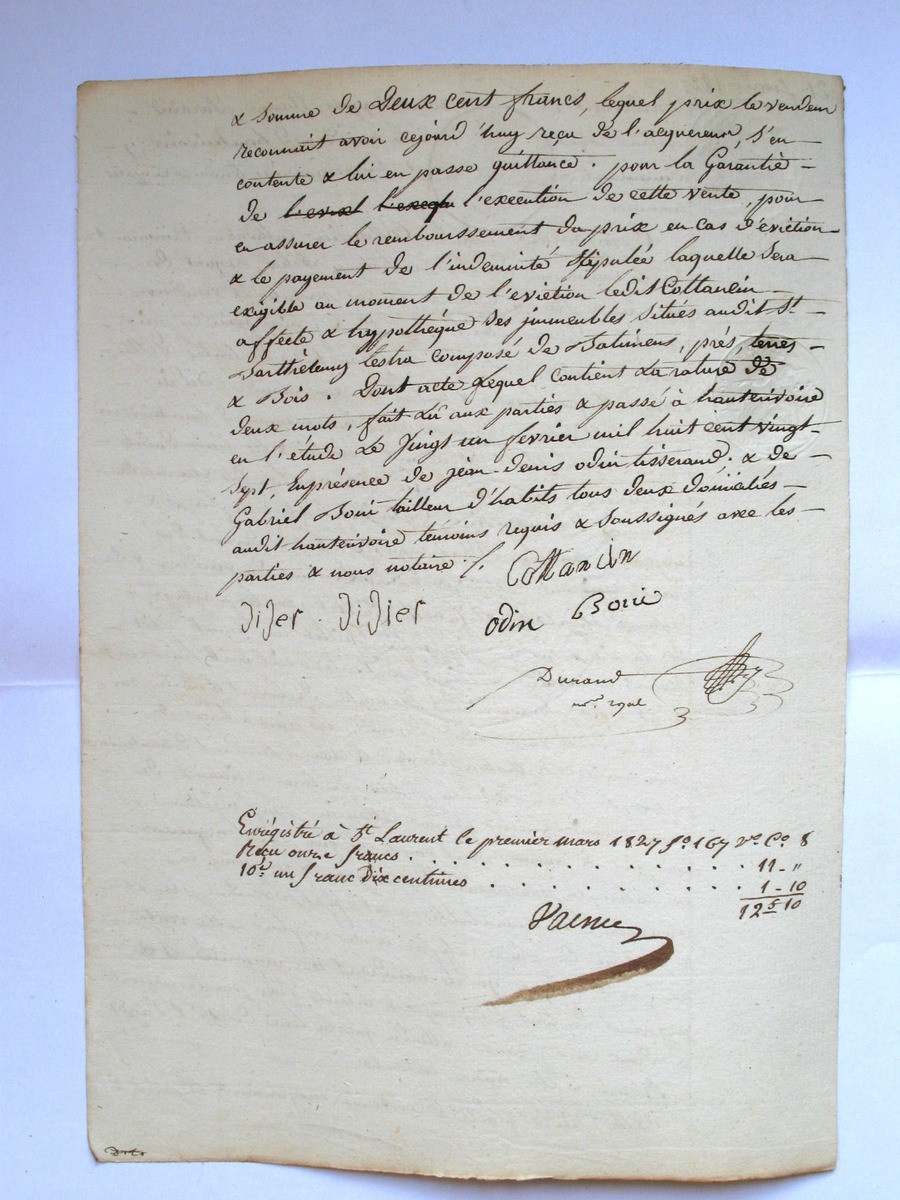 & somme de Deux cent francs, lequel prix le vendeur
reconnait avoir cejourd'huy reçu de l'acquereur, s'en
contente & lui en passe quittance. pour la Garantie
de l'execution de cette vente, pour
en assurer le remboursement du prix en cas d'eviction
& le payement de l'indemnité stipulée laquelle Sera
exigible au moment de l'eviction ledit Cottancin
affecte & hypothéque des immeubles situés audit St
Barthélemy Lestra composé de Batimens, prés, terres
& Bois. Dont acte lequel contient La rature de
deux mots, fait Lû aux parties & passé à hauterivoire
en l'étude Le Vingt un fevrier mil huit cent vingt
Sept, En présence de jean denis odin tisserand & de
Gabriel Boiri tailleur d'habits tous deux domiciliés
audit hauterivoire témoins requis & Soussignés avec les
parties & nous notaire /.
Cottancin
Didier
odin
Durand
nre. royal
Enrégistré à St Laurent le premier mars 1827 fo. 167 Vo. Co. 8
Reçu onze francs . . . . . . . . . . 11 - "
10e. un franc Dix centimes . . . . . . . . 1 - 10
12 f 10